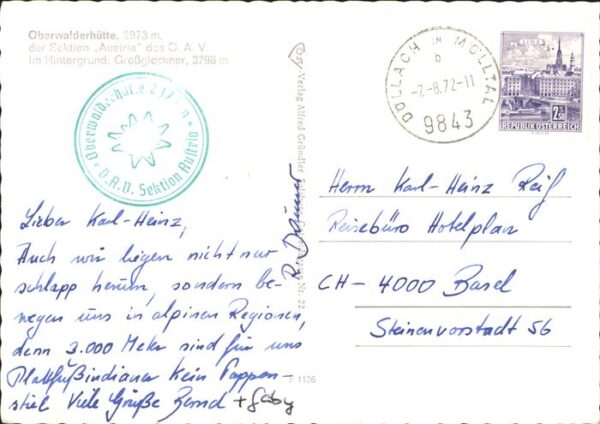 Oberwalderhütte, 2973 m,
der Sektion „Austria" des Ö. A. V.
Im Hintergrund: Großglockner, 3798 m
Oberwalderhütte 2973 m
Ö.A.V. Sektion Austria
DÖLLACH IM MÖLLTAL
b
-7.-8.72-11
9843
2.50
REPUBLIK ÖSTERREICH
Verlag Alfred Gründler
Nr. 22
F 1126
Lieber Karl-Heinz,
Auch wir liegen nicht nur
schlapp herum, sondern be-
wegen uns in alpinen Regionen,
denn 3.000 Meter sind für uns
Plattfußindianer kein Pappen-
stiel Viele Grüße Bernd + Gaby
Herrn Karl-Heinz Reif
Reisebüro Hotelplan
CH - 4000 Basel
Steinenvorstadt 56